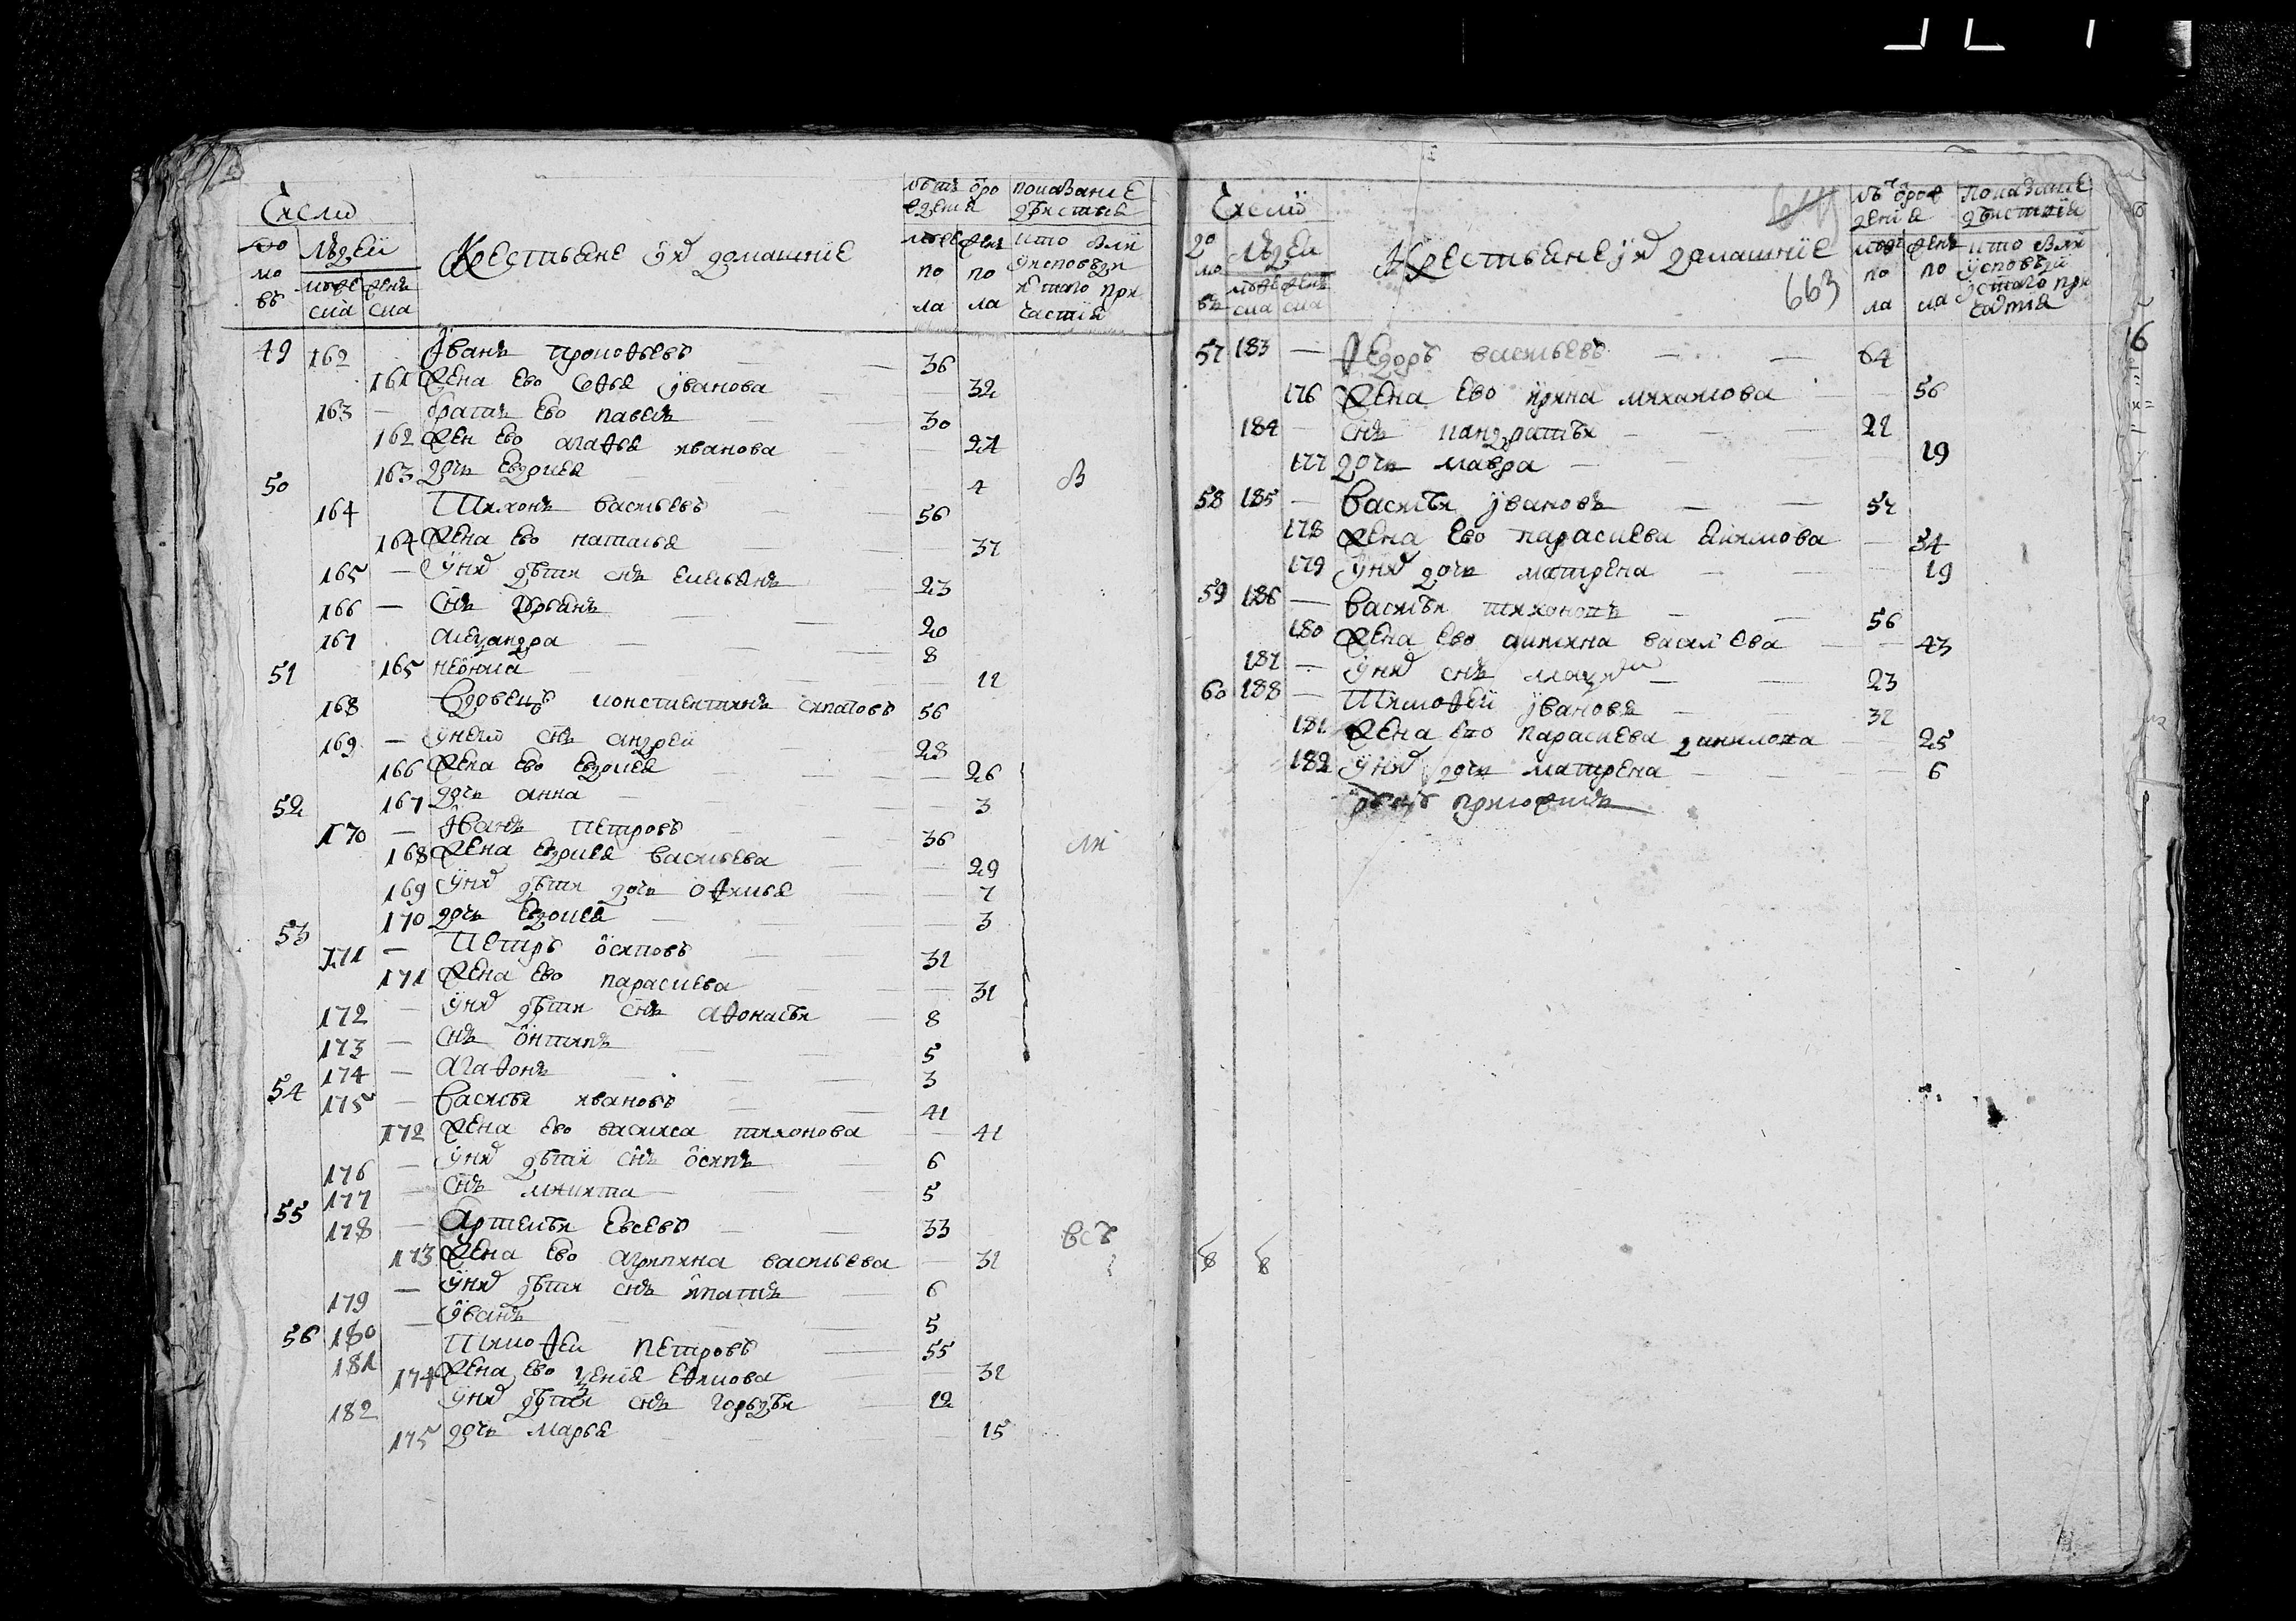 Число
домовъ
людей
мужеска
женска
Крестьяне ихъ домашние
лѣтъ отро
ждения
мужеска пола
женска пола
показание
действия
кто были
у исповеди
и святаго при
частия
49 162 Иванъ Прокофьевъ 36
161 Жена Ево Софья иванова 32
163 — братъ Ево павелъ 30
162 Жен Ево агафья иванова 24
163 дочь Евдокия 4
50
164 Тихонъ васильевъ 56
164 Жена Ево наталья 37
165 — У них дѣти снъ емельянъ 23
166 — Снъ 20
167 Александра 8
51 165 12
168 Вдовецъ констентинъ 56
169 — У нево снъ андрей 28
166 Жена Ево Евдокия 26
52 167 дочь анна 3
170 — Иванъ Петровъ 36
168 Жена Евдокия васильева 29
169 У них дѣти дочь офимья 7
170 дочь Евдокия 3
53
171 — Петръ осиповъ 32
171 Жена Ево парасиева 31
172 — У них дѣти снъ афонасѣи 8
173 — Снъ онтипъ 5
174 — Агафонъ 3
54
175 — Василѣи ивановъ 41
172 Жена Ево василиса тихонова 41
176 — У них дѣти снъ осипъ 6
177 — Снъ микита 5
55
178 — Артемѣи Евсевъ 33
173 Жена Ево агрипина васильева 32
179 — У них дѣти снъ ипатъ 6
180 — Иванъ 5
56
181 Тимофеи Петровъ 55
174 Жена Ево Ефимова 32
182 У них дѣти снъ гордѣи 12
175 дочь Марья 15
Число
до
мо
въ
людей
мужеска
женска
Крестьяне их домашние
663
лѣтъ отрож
дения
мужеска пола
женска пола
показание
действия
кто были
у исповеди
и святаго при
частия
16
57 183 — Федоръ васильевъ 64
176 Жена Ево ирина михаилова 56
184 — Снъ панкратѣи 22
177 дочь мавра 19
58 185 — Василѣи ивановъ 57
178 Жена Ево парасиева Екимова 34
179 У них дочь матрена 19
59 186 — Василѣи тихоновъ 56
180 Жена Ево акилина васильева 43
187 — У них снъ 23
60 188 — Тимофеи ивановъ 32
181 Жена Ево парасиева данилова 25
182 У них дочь матрена 6